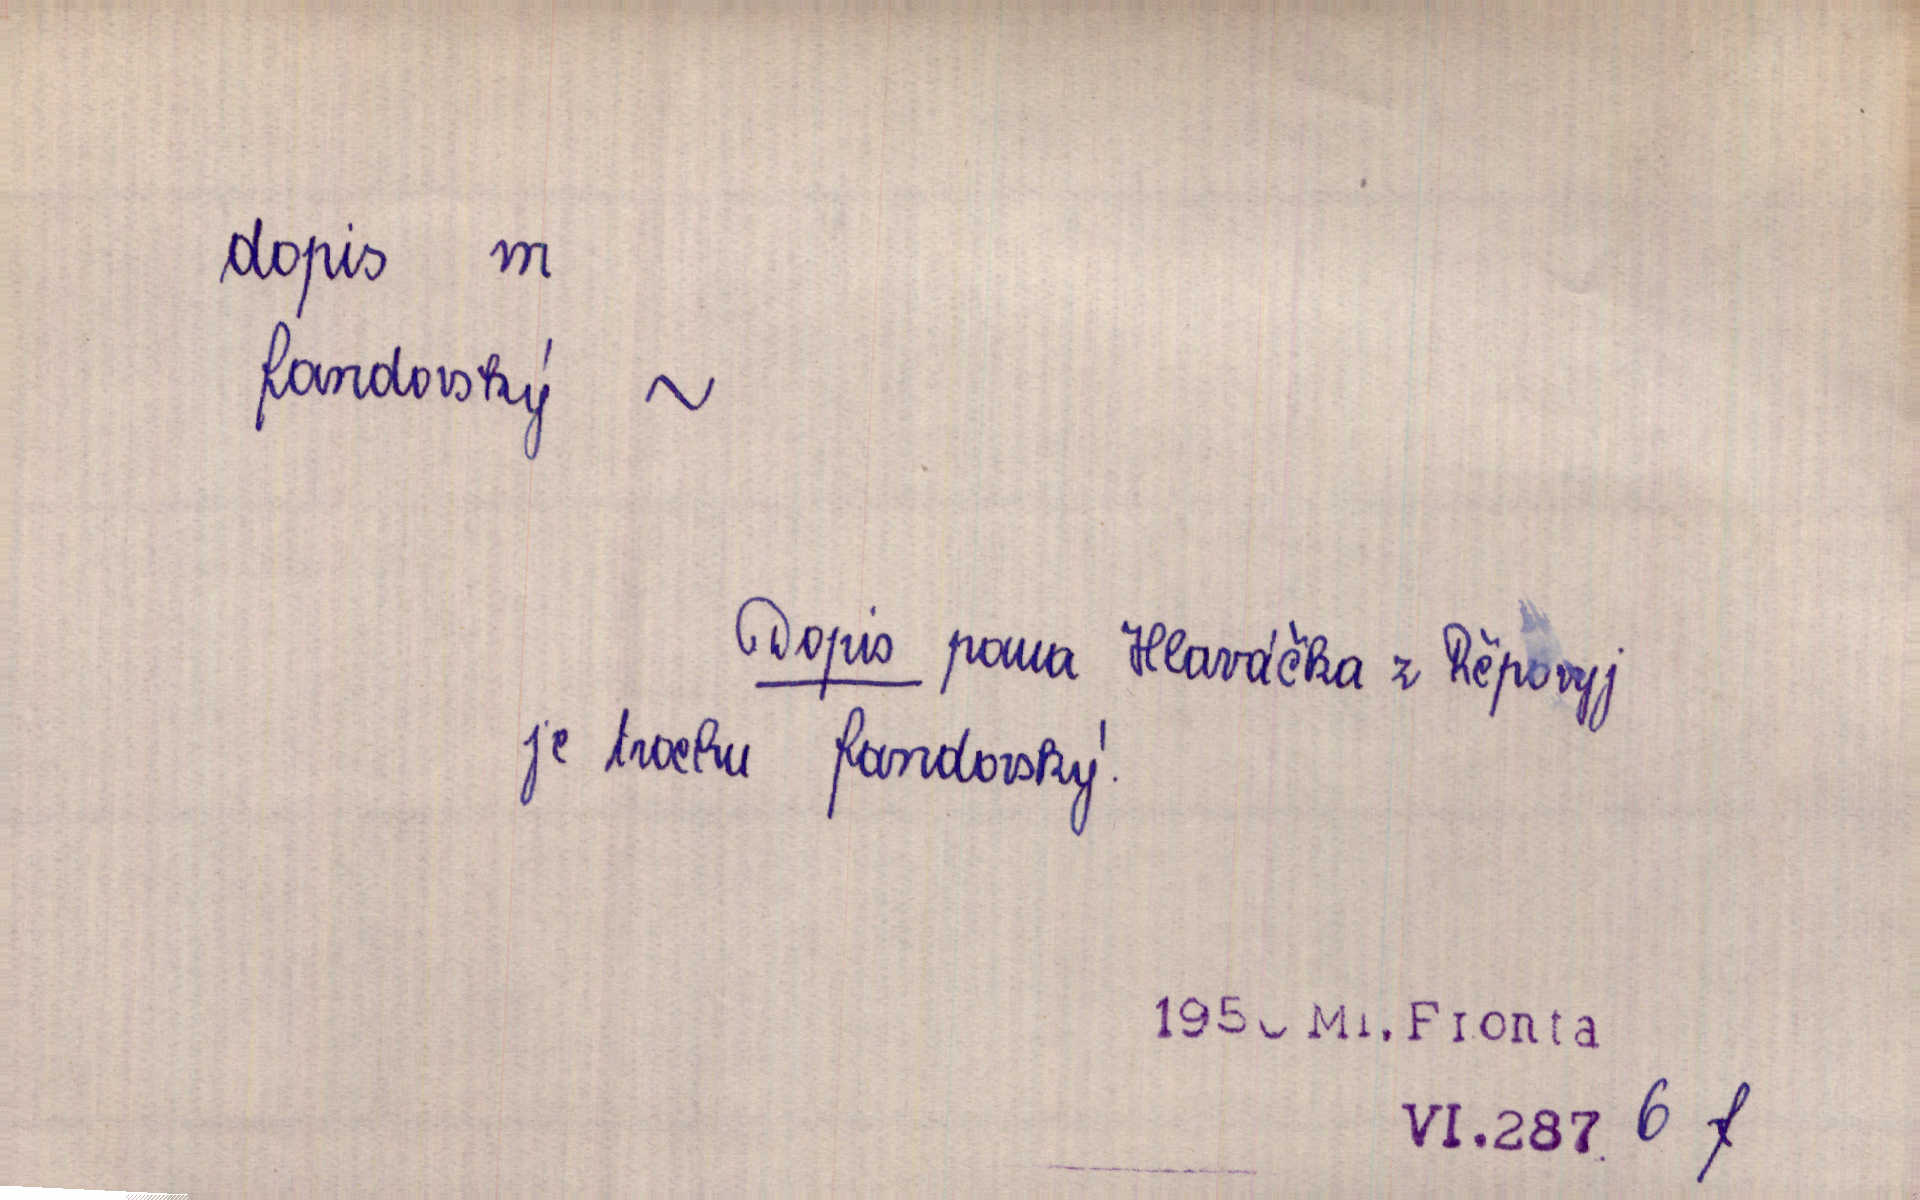 dopis m
fandovský ~
Dopis pana Hlaváčka z Řeporyj
je trochu fandovský.
Ml. Fronta
VI.287 6 f